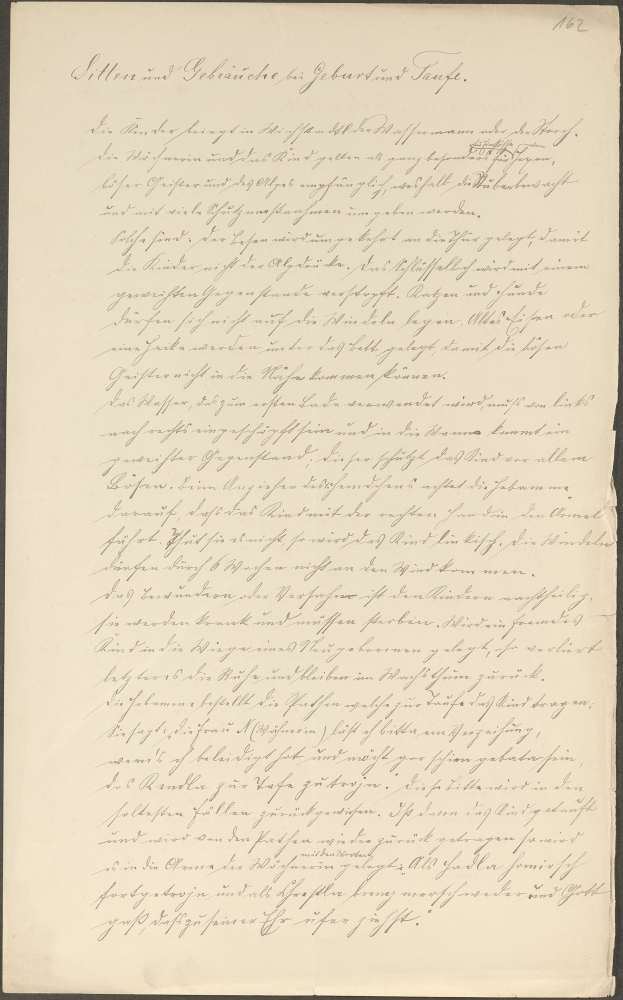 162
Sitten und Gebräuche bei Geburt und Taufe.
Die Kinder bringt in Wichstadtl der Wassermann oder der Storch.
Die Wöchnerin und das Kind gelten als ganz besonders für Hexen,
böser Geister und des Alpes empfänglich, weshalb die Stube bewacht
und mit viele Schutzmaßnahmen umgeben werden.
Solche sind: Der Besen wird umgekehrt an die Thür gelegt, damit
die Kinder nicht der Alp drücke. Das Schlüsselloch wird mit einem
geweihten Gegenstande verstopft. Katzen und Hunde
dürfen sich nicht auf die Windeln legen. Altes Eisen oder
eine Hacke werden unter das Bett gelegt, damit die bösen
Geister nicht in die Nähe kommen können.
Das Wasser, das zum ersten Bade verwendet wird, muß von links
nach rechts eingeschöpft sein und in die Wanne kommt ein
geweihter Gegenstand; dieser schützt das Kind vor allem
Bösen. Beim Anziehen des Hemdchens achtet die Hebamme
darauf, daß das Kind mit der rechten Hand in den Ärmel
führt. Thut sie es nicht, so wird das Kind linkisch. Die Windeln
dürfen durch 6 Wochen nicht an den Wind kommen.
Das Bewundern oder ist den Kindern nachtheilig,
sie werden krank und müssen sterben. Wird ein fremdes
Kind in die Wiege eines Neugeborenen gelegt, so verliert
letzteres die Ruhe und bleiben im Wachsthum zurück.
Die Hebamme bestellt die Pathen welche zur Taufe das Kind tragen.
Sie sagt: „Die Frau N (Wöchnerin) läßt ich bitta em Verzeihung,
wenn's ich beleidigt hot, und möcht gor schien gebata sein,
das Kendla zur Tafe zu trojn." Diese Bitte wird in den
seltesten Fällen zurückgewiesen. Ist dann das Kind getauft
und wird von den Pathen wieder zurück getragen so wird
es in die Arme der Wöchnerin mit den Worten gelegt: „Als Hadla homirsch
fortgetrojn und als Chrestla breng mersch wieder und Gott
gaß, daß zu seiner Ehr ufer ziehst."